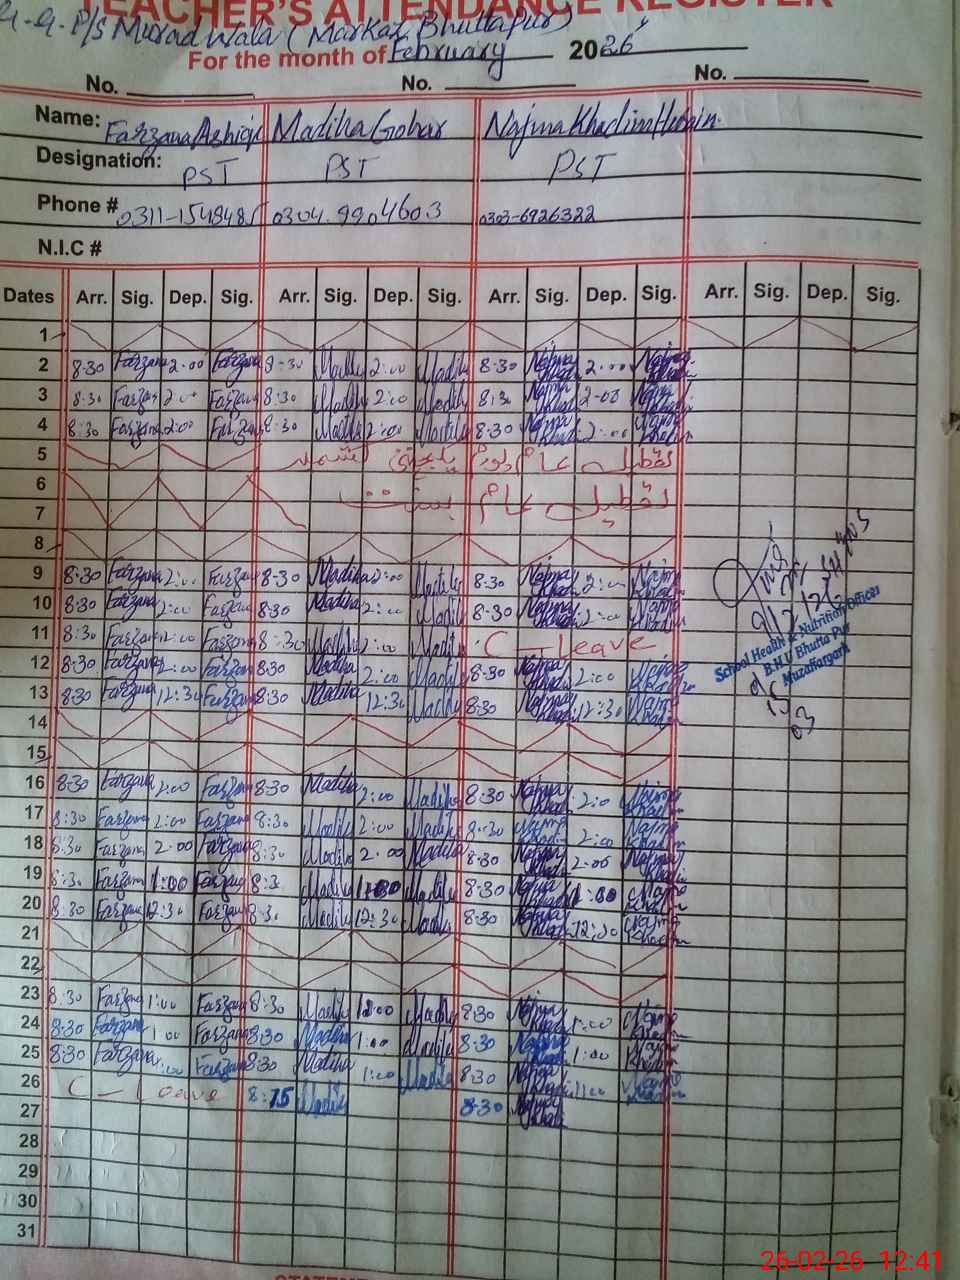 TEACHER'S ATTENDANCE REGISTER
G.G.P/S Murad Wala (Markaz Bhuttapur)
For the month of February 2026
No. No. No.
Name: Farzana Ashiq Madiha Gohar Najma Khadim Hussain
Designation: PST PST PST
Phone # 0304.9904603 0303-6926322
N.I.C #
Dates Arr. Sig. Dep. Sig. Arr. Sig. Dep. Sig. Arr. Sig. Dep. Sig. Arr. Sig. Dep. Sig.
1
2 8:30 Farzana 2:00 Farzana 8:30 Madiha 2:00 Madiha 8:30 Najma Khadim 2:00 Najma Khadim
3 8:30 Farzana 2:00 Farzana 8:30 Madiha 2:00 Madiha 8:30 Najma Khadim 2:00 Najma Khadim
4 8:30 Farzana 2:00 Farzana 8:30 Madiha 2:00 Madiha 8:30 Najma Khadim 2:00 Najma Khadim
5 تعطیل عام یوم یکجہتی کشمیر
6 تعطیل عام بسنت
7
8
9 8:30 Farzana 2:00 Farzana 8:30 Madiha 2:00 Madiha 8:30 Najma Khadim 2:00 Najma Khadim
10 8:30 Farzana 2:00 Farzana 8:30 Madiha 2:00 Madiha 8:30 Najma Khadim 2:00 Najma Khadim
11 8:30 Farzana 2:00 Farzana 8:30 Madiha 2:00 Madiha C-Leave
12 8:30 Farzana 2:00 Farzana 8:30 Madiha 2:00 Madiha 8:30 Najma Khadim 2:00 Najma Khadim
13 8:30 Farzana 12:30 Farzana 8:30 Madiha 12:30 Madiha 8:30 Najma Khadim 12:30 Najma Khadim
School Health & Nutrition Officer
B.H.U Bhutta Pur
Muzaffargarh
14
15
16 8:30 Farzana 2:00 Farzana 8:30 Madiha 2:00 Madiha 8:30 Najma Khadim 2:00 Najma Khadim
17 8:30 Farzana 2:00 Farzana 8:30 Madiha 2:00 Madiha 8:30 Najma Khadim 2:00 Najma Khadim
18 8:30 Farzana 2:00 Farzana 8:30 Madiha 2:00 Madiha 8:30 Najma Khadim 2:00 Najma Khadim
19 8:30 Farzana 1:00 Farzana 8:30 Madiha 1:00 Madiha 8:30 Najma Khadim 1:00 Najma Khadim
20 8:30 Farzana 12:30 Farzana 8:30 Madiha 12:30 Madiha 8:30 Najma Khadim 12:30 Najma Khadim
21
22
23 8:30 Farzana 1:00 Farzana 8:30 Madiha 1:00 Madiha 8:30 Najma Khadim 1:00 Najma Khadim
24 8:30 Farzana 1:00 Farzana 8:30 Madiha 1:00 Madiha 8:30 Najma Khadim 1:00 Najma Khadim
25 8:30 Farzana 1:00 Farzana 8:30 Madiha 1:00 Madiha 8:30 Najma Khadim 1:00 Najma Khadim
26 C-Leave 8:15 Madiha 8:30 Najma Khadim
27
28
29
30
31
26-02-26 12:41